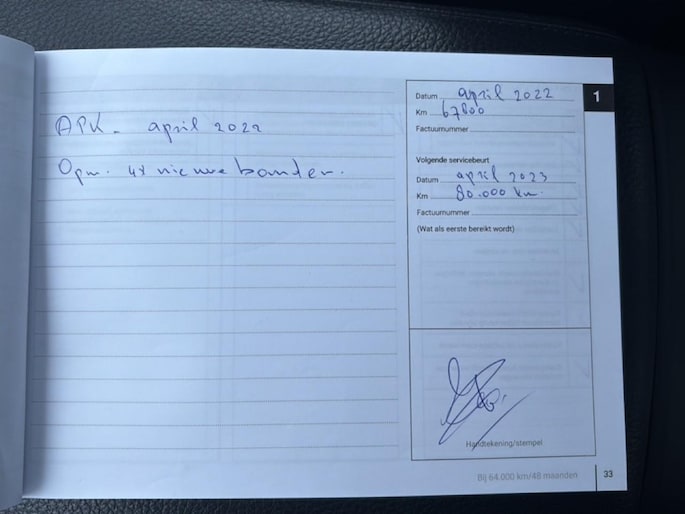 APK - april 2022
Opm. 4x nieuwe banden.
Datum april 2022
Km 67800
Factuurnummer
Volgende servicebeurt
Datum april 2023
Km 80.000 km.
Factuurnummer
(Wat als eerste bereikt wordt)
Handtekening/stempel
1
Bij 64.000 km/48 maanden
33